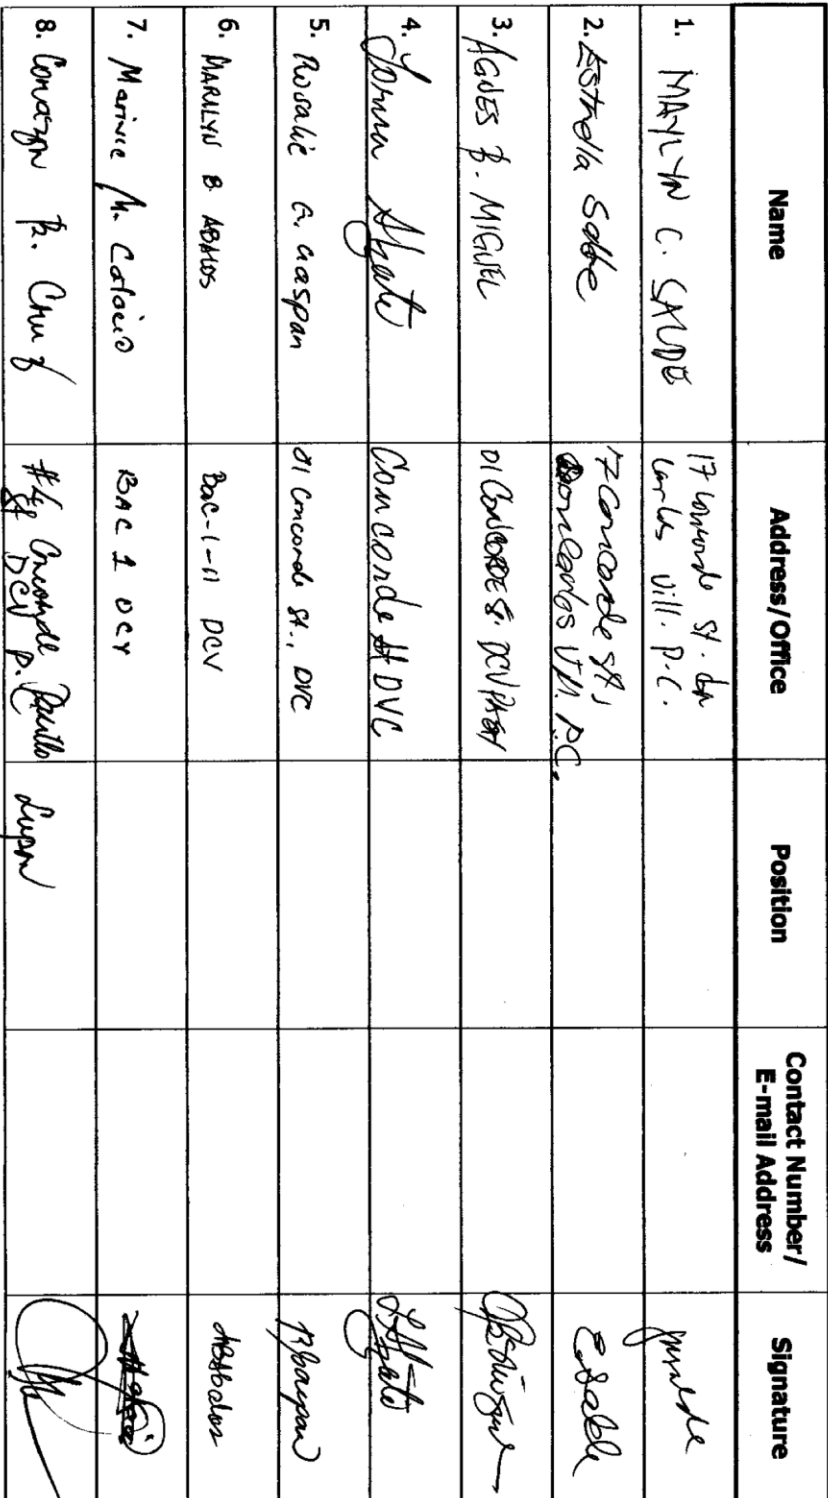 Name Address/Office Position Contact Number/ E-mail Address Signature
1. MAYLYN C. SALDE 17 Concorde St. Don
Carlos Vill. P.C.
2. Estrella Sable 7 Concorde St,
Doncarlos Vil. P.C.
3. AGNES B. MIGUEL 01 CONCORDE St. DCV PASAY
4. Abzate Concorde St DVC
5. Rosalie G. Gaspan 01 Concorde St., DVC
6. MARILYN B. ABALOS Bac-1-11 DCV
7. Marinie M. BAC 1 DCV
8. Corazon R. Cruz #4 Concorde
St DCV P.C. Lupon